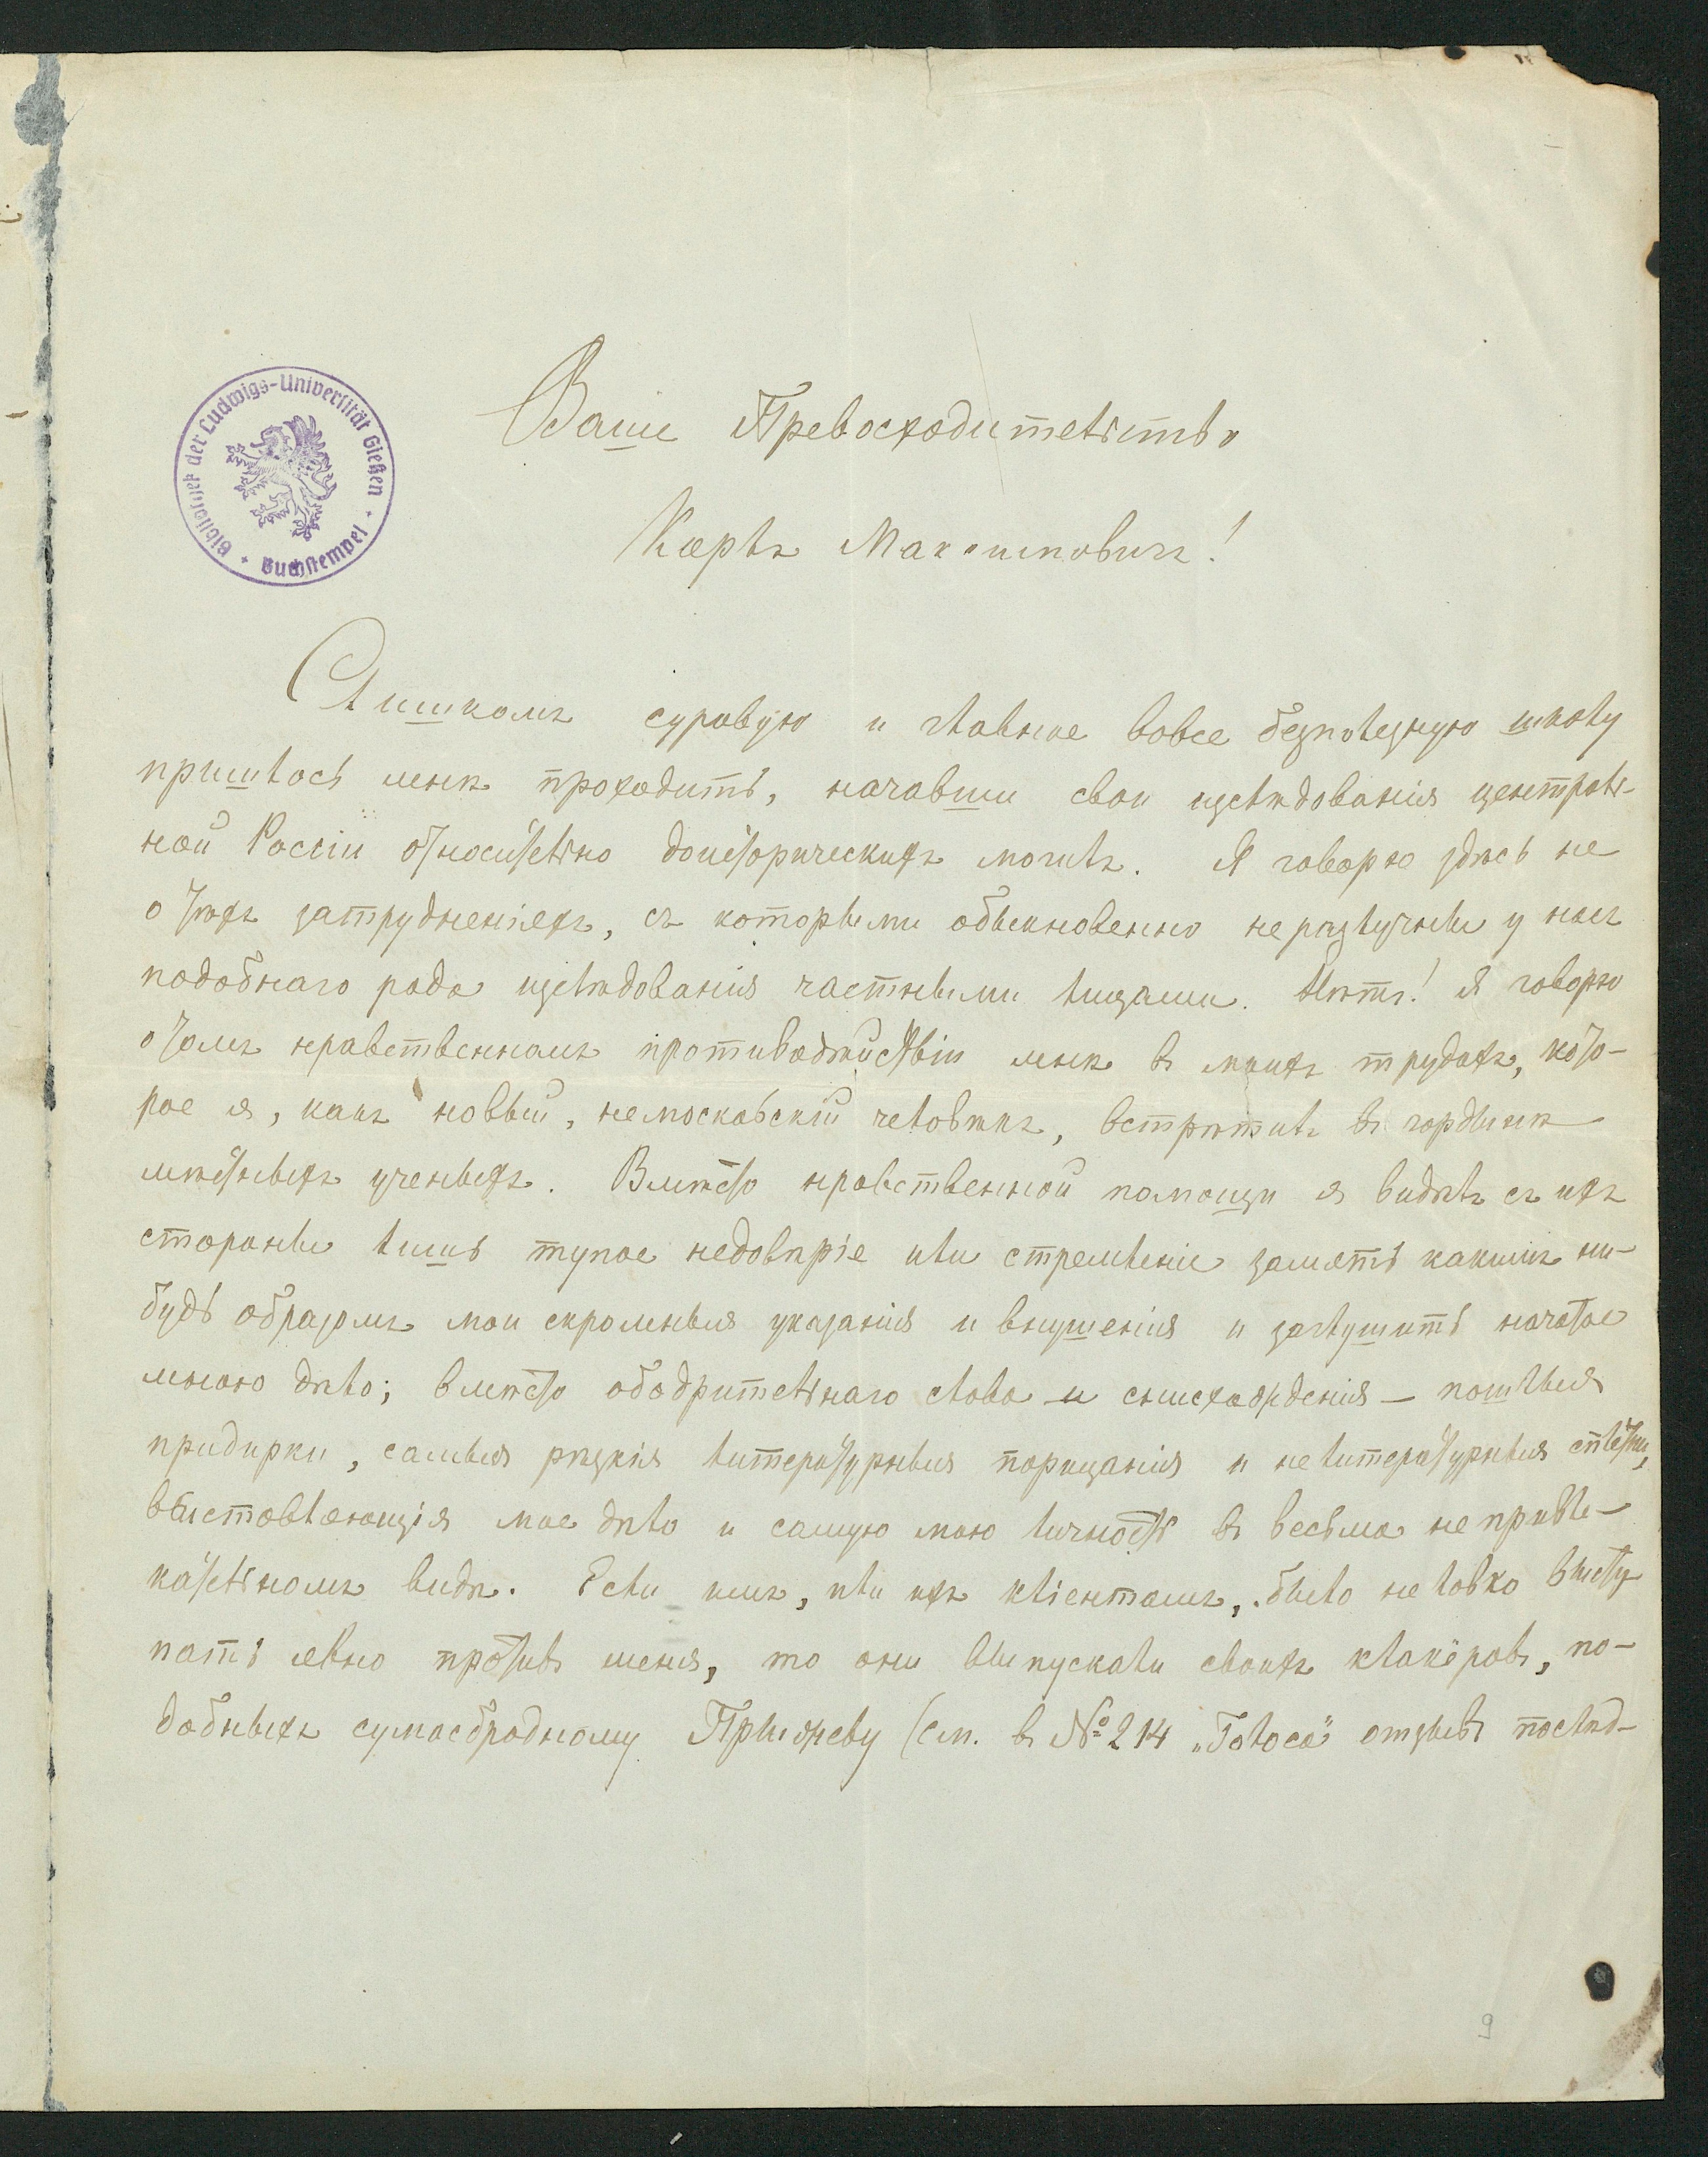 Bibliothek der Ludwigs-Universität Gießen
Buchstempel
Ваше Превосходительство
Карлъ Максимовичъ!
Слишкомъ суровую и главное вовсе безполезную школу
пришлось мнѣ проходить, начавши свои изслѣдованія централь-
ной Россіи относительно доисторическихъ могилъ. Я говорю здѣсь не
о тѣхъ затрудненіяхъ, съ которыми обыкновенно неразлучны у насъ
подобнаго рода изслѣдованія частными лицами. Нѣтъ! я говорю
о томъ нравственномъ противодѣйствіи мнѣ въ моихъ трудахъ, кото-
рое я, какъ новый, немосковскій человѣкъ, встрѣтилъ въ гордынѣ
мѣстныхъ ученыхъ. Вмѣсто нравственной помощи я видѣлъ съ ихъ
стороны лишь тупое недовѣріе или стремленіе замять какимъ ни-
будь образомъ мои скромныя указанія и внушенія и заглушить начатое
мною дѣло; вмѣсто ободрительнаго слова и снисхожденія — пошлыя
придирки, самыя рѣзкія литературныя порицанія и нелитературныя сплетни,
выставляющія мое дѣло и самую мою личность въ весьма непривле-
кательномъ видѣ. Если имъ, или ихъ кліентамъ, было неловко высту-
пать явно противъ меня, то они выпускали своихъ клакёровъ, по-
добныхъ сумасбродному Прыжову (см. въ № 214 „Голоса" отзывъ послѣд-
9